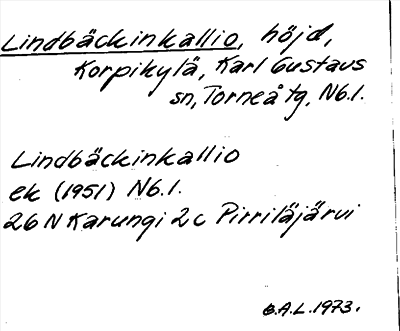 Lindbäckinkallio, höjd,
Korpikylä, Karl Gustavs
sn, Torneå tg, Nb.l.
Lindbäckinkallio
ek (1951) Nb.l.
26 N Karungi 2c Pirriläjärvi
B.A.L. 1973.